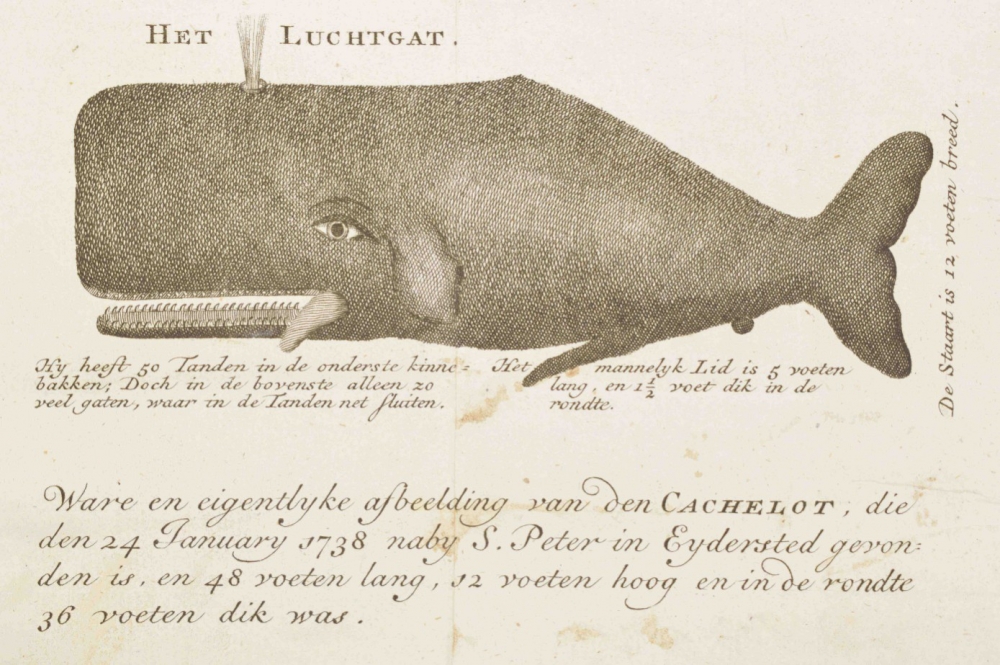 HET LUCHTGAT.
Hy heeft 50 Tanden in de onderste kinne=
bakken; Doch in de bovenste alleen zo
veel gaten, waar in de Tanden net sluiten.
Het mannelyk Lid is 5 voeten
lang, en 1 1/2 voet dik in de
rondte.
De Staart is 12 voeten breed.
Ware en eigentlyke afbeelding van den CACHELOT, die
den 24 January 1738 naby S. Peter in Eydersted gevon=
den is, en 48 voeten lang, 12 voeten hoog en in de rondte
36 voeten dik was.